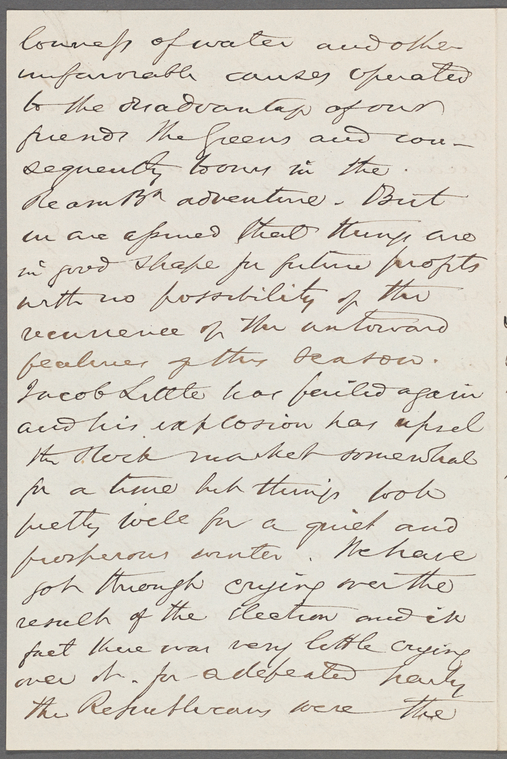 lowness of water and other
unfavorable causes operated
to the disadvantage of our
friends the Greens and con-
sequently to ours in the
Beam Bk adventure. But
we are assured that things are
in good shape for future profits
with no possibility of the
recurrence of the untoward
features of this season.
Jacob Little has failed again
and his explosion has upset
the Stock market somewhat
for a time but things look
pretty well for a quiet and
prosperous winter. We have
got through crying over the
result of the Election and in
fact there was very little crying
over it. for a defeated party
the Republicans were the